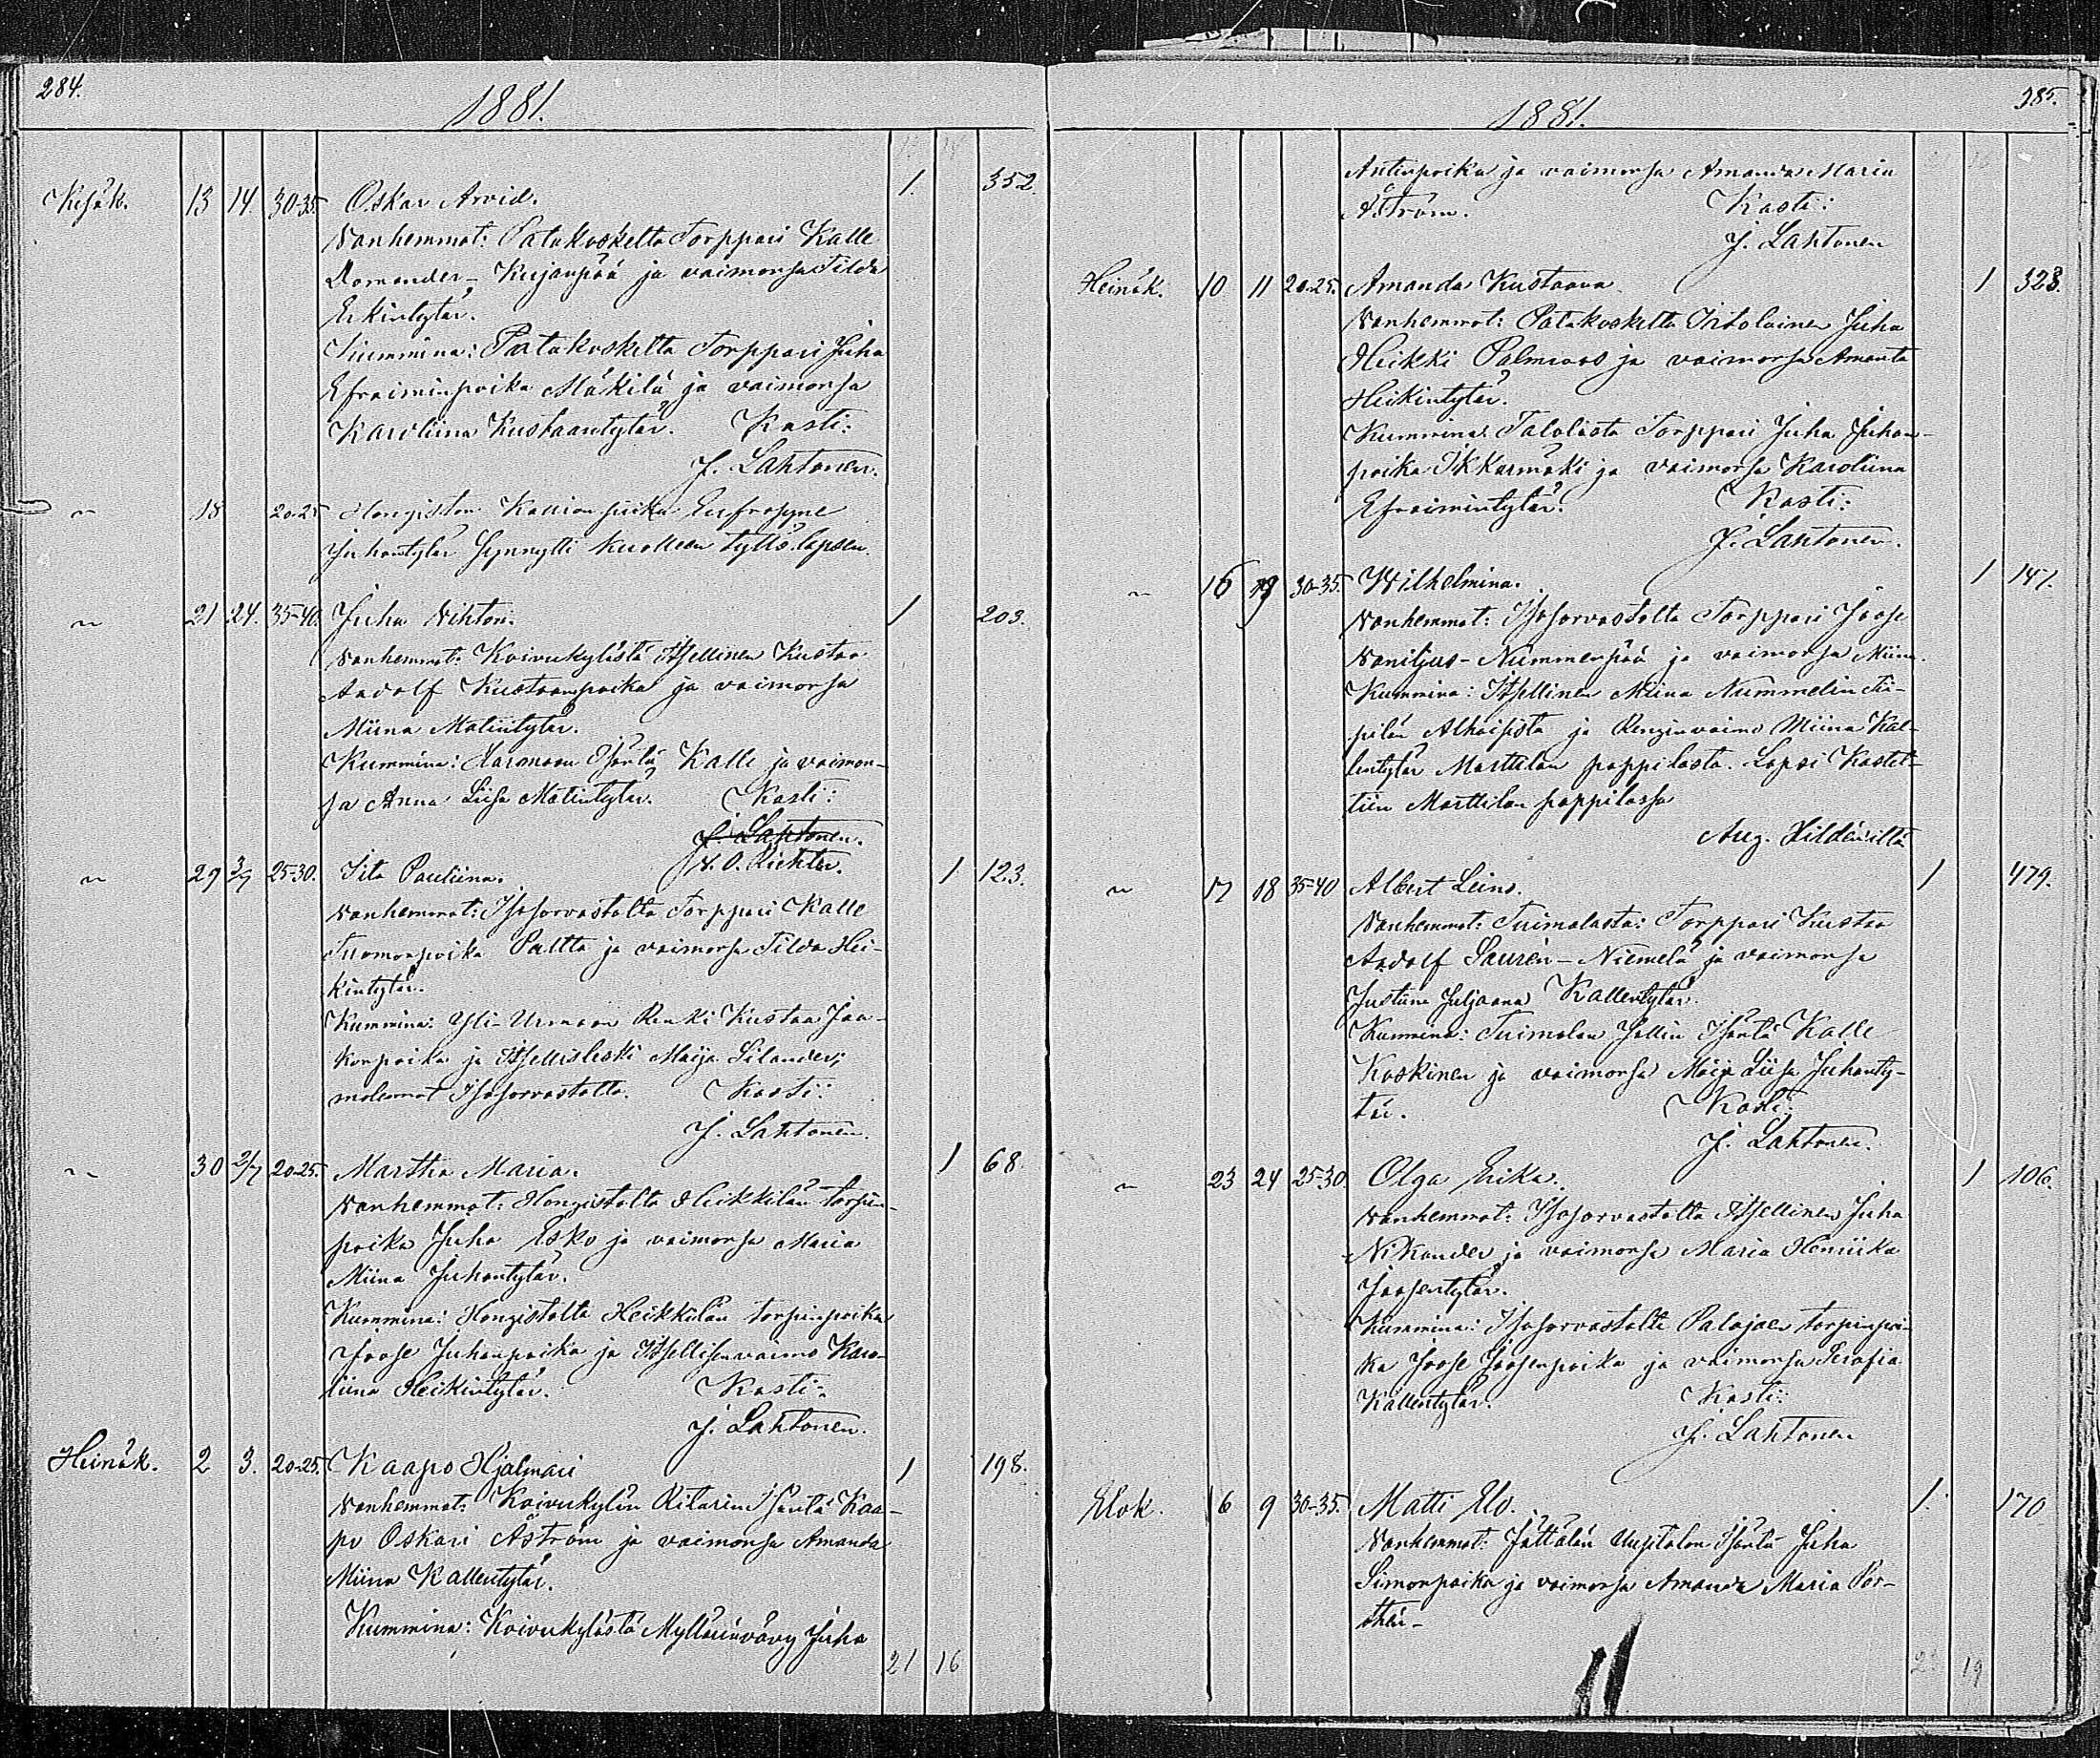 284.
1881.
Kesäk. 13 14 30-35. Oskar Arvid. 1. 352.
Vanhemmat: Patakoskelta Torppari Kalle
Domander-Kujanpää ja vaimonsa Tilda
Erkintytär.
Kummina: Patakoskelta Torppari Juha
Efraiminpoika Mäkilä ja vaimonsa
Karoliina Kustaantytär. Kasti:
J. Lahtonen.
" 18 20-25 Hongiston Eufrosyne
Juhontytär synnytti kuolleen tyttölapsen.
" 21 24. 35-40. Juha Vihtori. 1 203.
Vanhemmat: Koivukylästä Itsellinen Kustaa
Aadolf Kustaanpoika ja vaimonsa
Miina Matintytär.
Kummina: Isäntä Kalle ja vaimon-
sa Anna Liisa Matintytär. Kasti:
J. Lahtonen.
K. O. Richter.
" 29 3/7 25-30. Iita Pauliina. 1 123.
Vanhemmat: Isosorvastolta Torppari Kalle
Tuomonpoika Paltta ja vaimonsa Tilda Hei-
kintytär.
Kummina: Yli-Urmaan Renki Kustaa Jaa-
konpoika ja Itsellisleski Maija Silander;
molemmat Isosorvastolta. Kasti:
J. Lahtonen.
" 30 3/7 20-25. Martha Maria. 1 68.
Vanhemmat: Hongistolta Heikkilän torpan-
poika Juha Esko ja vaimonsa Maria
Miina Juhontytär.
Kummina: Hongistolta Heikkilän torpanpoika
Joose Juhanpoika ja Itsellisenvaimo Karo-
liina Heikintytär. Kasti:
J. Lahtonen.
Heinäk. 2 3. 20-25. Kaapo Hjalmari 1 198.
Vanhemmat: Koivukylän Ritarin Isäntä Kaa-
po Oskari Åström ja vaimonsa Amanda
Miina Kallentytär.
Kummina: Koivukylästä Myllärinvävy Juha
21 16
285.
1881.
Antinpoika ja vaimonsa Amanda Maria
Åström. Kasti:
J. Lahtonen
Heinäk. 10 11 20-25. Amanda Kustaava. 1 323.
Vanhemmat: Patakoskelta Juha
Heikki Palmroos ja vaimonsa Amanta
Heikintytär.
Kummina: Talolasta Torppari Juha Juhan-
poika Ikkarmäki ja vaimonsa Karoliina
Efraimintytär. Kasti:
J. Lahtonen.
" 16 19 30-35. Wilhelmina. 1 147.
Vanhemmat: Isosorvastolta Torppari Joose
Vaniljus-Nummenpää ja vaimonsa Miina.
Kummina: Itsellinen Miina Nummelin Tii-
pilän Alhaisista ja Renginvaimo Miina Kal-
lentytär Marttilan pappilasta. Lapsi Kastet-
tiin Marttilan pappilassa
Aug. Hildénilta
" 17 18 35-40 Albert Leino. 1 479.
Vanhemmat: Tuimalasta: Torppari Kustaa
Aadolf Saurén-Niemelä ja vaimonsa
Justiina Juljaana Kallentytär.
Kummina: Tuimalan Jallin Isäntä Kalle
Koskinen ja vaimonsa Maija Liisa Juhanty-
tär. Kasti:
J. Lahtonen.
" 23 24 25-30. Olga Erika. 1 106.
Vanhemmat: Isosorvastolta Itsellinen Juha
Nikander ja vaimonsa Maria Henriika
Joosentytär.
Kummina: Isosorvastolta Palojaen torpanpoi-
ka Joose Joosenpoika ja vaimonsa Serafia
Kallentytär. Kasti:
J. Lahtonen
Elok. 6 9 30-35. Matti Elo. 1. 170
Vanhemmat: Jättälän Uustalon Isäntä Juha
Simonpoika ja vaimonsa Amanda Maria Por-
thén-
19